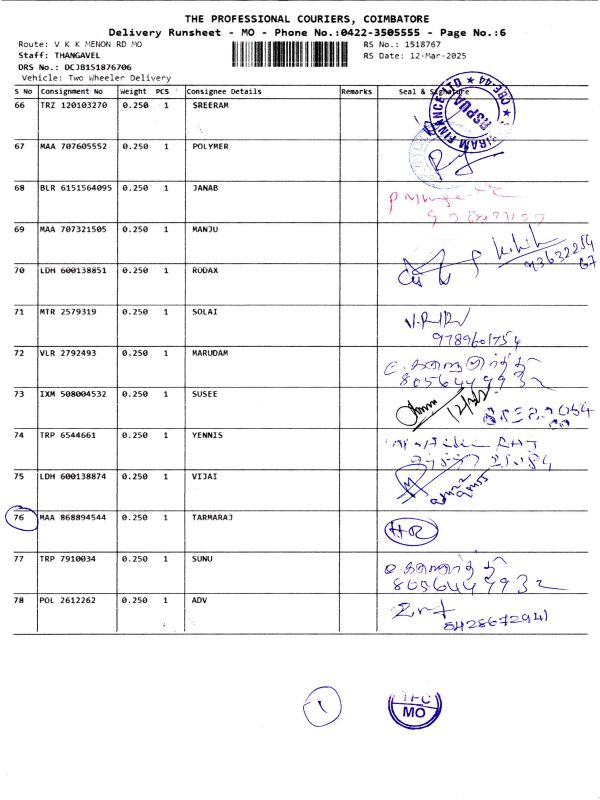 THE PROFESSIONAL COURIERS, COIMBATORE
Delivery Runsheet - MO - Phone No.:0422-3505555 - Page No.:6
Route: V K K MENON RD MO RS No.: 1518767
Staff: THANGAVEL RS Date: 12-Mar-2025
DRS No.: DCJB151876706
Vehicle: Two Wheeler Delivery
S No Consignment No Weight PCS Consignee Details Remarks Seal & Signature
66 TRZ 120103270 0.250 1 SREERAM
67 MAA 707605552 0.250 1 POLYMER
68 BLR 6151564095 0.250 1 JANAB
69 MAA 707321505 0.250 1 MANJU
70 LDH 600138851 0.250 1 RODAX
71 MTR 2579319 0.250 1 SOLAI
9789601754
72 VLR 2792493 0.250 1 MARUDAM
8056449932
73 IXM 508004532 0.250 1 SUSEE
74 TRP 6544661 0.250 1 YENNIS
75 LDH 600138874 0.250 1 VIJAI
76 MAA 868894544 0.250 1 TARMARAJ
HR
77 TRP 7910034 0.250 1 SUNU
8056449932
78 POL 2612262 0.250 1 ADV
8428672941
1
TPC
MO